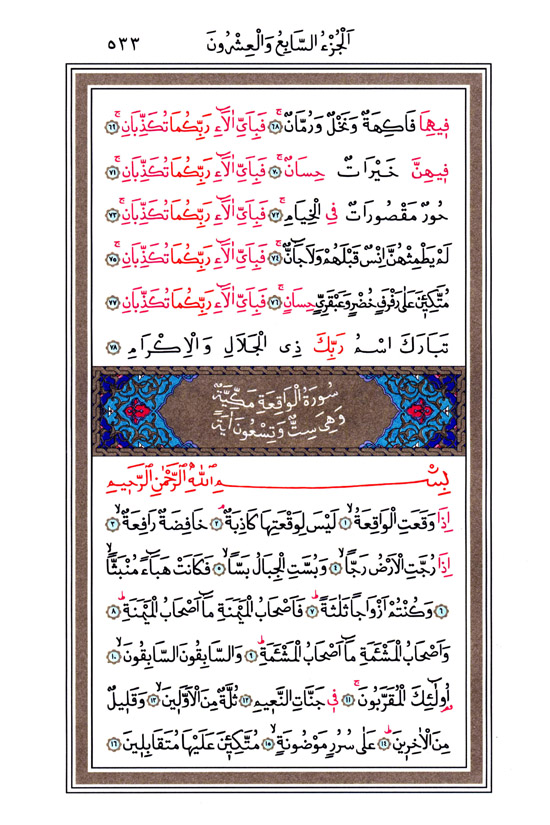 اَلْجُزْءُ السَّابِعُ وَالْعِشْرُونَ ٥٣٣
فِيهِمَا فَاكِهَةٌ وَنَخْلٌ وَرُمَّانٌۚ ﴿٦٨﴾ فَبِاَيِّ اٰلَٓاءِ رَبِّكُمَا تُكَذِّبَانِۚ ﴿٦٩﴾
فِيهِنَّ خَيْرَاتٌ حِسَانٌۚ ﴿٧٠﴾ فَبِاَيِّ اٰلَٓاءِ رَبِّكُمَا تُكَذِّبَانِۚ ﴿٧١﴾
حُورٌ مَقْصُورَاتٌ فِي الْخِيَامِۚ ﴿٧٢﴾ فَبِاَيِّ اٰلَٓاءِ رَبِّكُمَا تُكَذِّبَانِۚ ﴿٧٣﴾
لَمْ يَطْمِثْهُنَّ اِنْسٌ قَبْلَهُمْ وَلَا جَٓانٌّۚ ﴿٧٤﴾ فَبِاَيِّ اٰلَٓاءِ رَبِّكُمَا تُكَذِّبَانِۚ ﴿٧٥﴾
مُتَّكِـِٔينَ عَلٰى رَفْرَفٍ خُضْرٍ وَعَبْقَرِيٍّ حِسَانٍۚ ﴿٧٦﴾ فَبِاَيِّ اٰلَٓاءِ رَبِّكُمَا تُكَذِّبَانِ ﴿٧٧﴾
تَبَارَكَ اسْمُ رَبِّكَ ذِي الْجَلَالِ وَالْاِكْرَامِ ﴿٧٨﴾
سُورَةُ الْوَاقِعَةِ مَكِّيَّةٌ
وَهِيَ سِتٌّ وَتِسْعُونَ اٰيَةً
بِسْمِ اللّٰهِ الرَّحْمٰنِ الرَّحِيمِ
اِذَا وَقَعَتِ الْوَاقِعَةُۙ ﴿١﴾ لَيْسَ لِوَقْعَتِهَا كَاذِبَةٌۢ ﴿٢﴾ خَافِضَةٌ رَافِعَةٌۙ ﴿٣﴾
اِذَا رُجَّتِ الْاَرْضُ رَجًّاۙ ﴿٤﴾ وَبُسَّتِ الْجِبَالُ بَسًّاۙ ﴿٥﴾ فَكَانَتْ هَبَٓاءً مُنْبَثًّاۙ
﴿٦﴾ وَكُنْتُمْ اَزْوَاجًا ثَلٰثَةًۜ ﴿٧﴾ فَاَصْحَابُ الْمَيْمَنَةِ مَٓا اَصْحَابُ الْمَيْمَنَةِۜ ﴿٨﴾
وَاَصْحَابُ الْمَشْـَٔمَةِ مَٓا اَصْحَابُ الْمَشْـَٔمَةِۜ ﴿٩﴾ وَالسَّابِقُونَ السَّابِقُونَۙ ﴿١٠﴾
اُو۬لٰٓئِكَ الْمُقَرَّبُونَۚ ﴿١١﴾ فِي جَنَّاتِ النَّعِيمِ ﴿١٢﴾ ثُلَّةٌ مِنَ الْاَوَّلِينَۙ ﴿١٣﴾ وَقَلِيلٌ
مِنَ الْاٰخِرِينَۜ ﴿١٤﴾ عَلٰى سُرُرٍ مَوْضُونَةٍۙ ﴿١٥﴾ مُتَّكِـِٔينَ عَلَيْهَا مُتَقَابِلِينَ ﴿١٦﴾